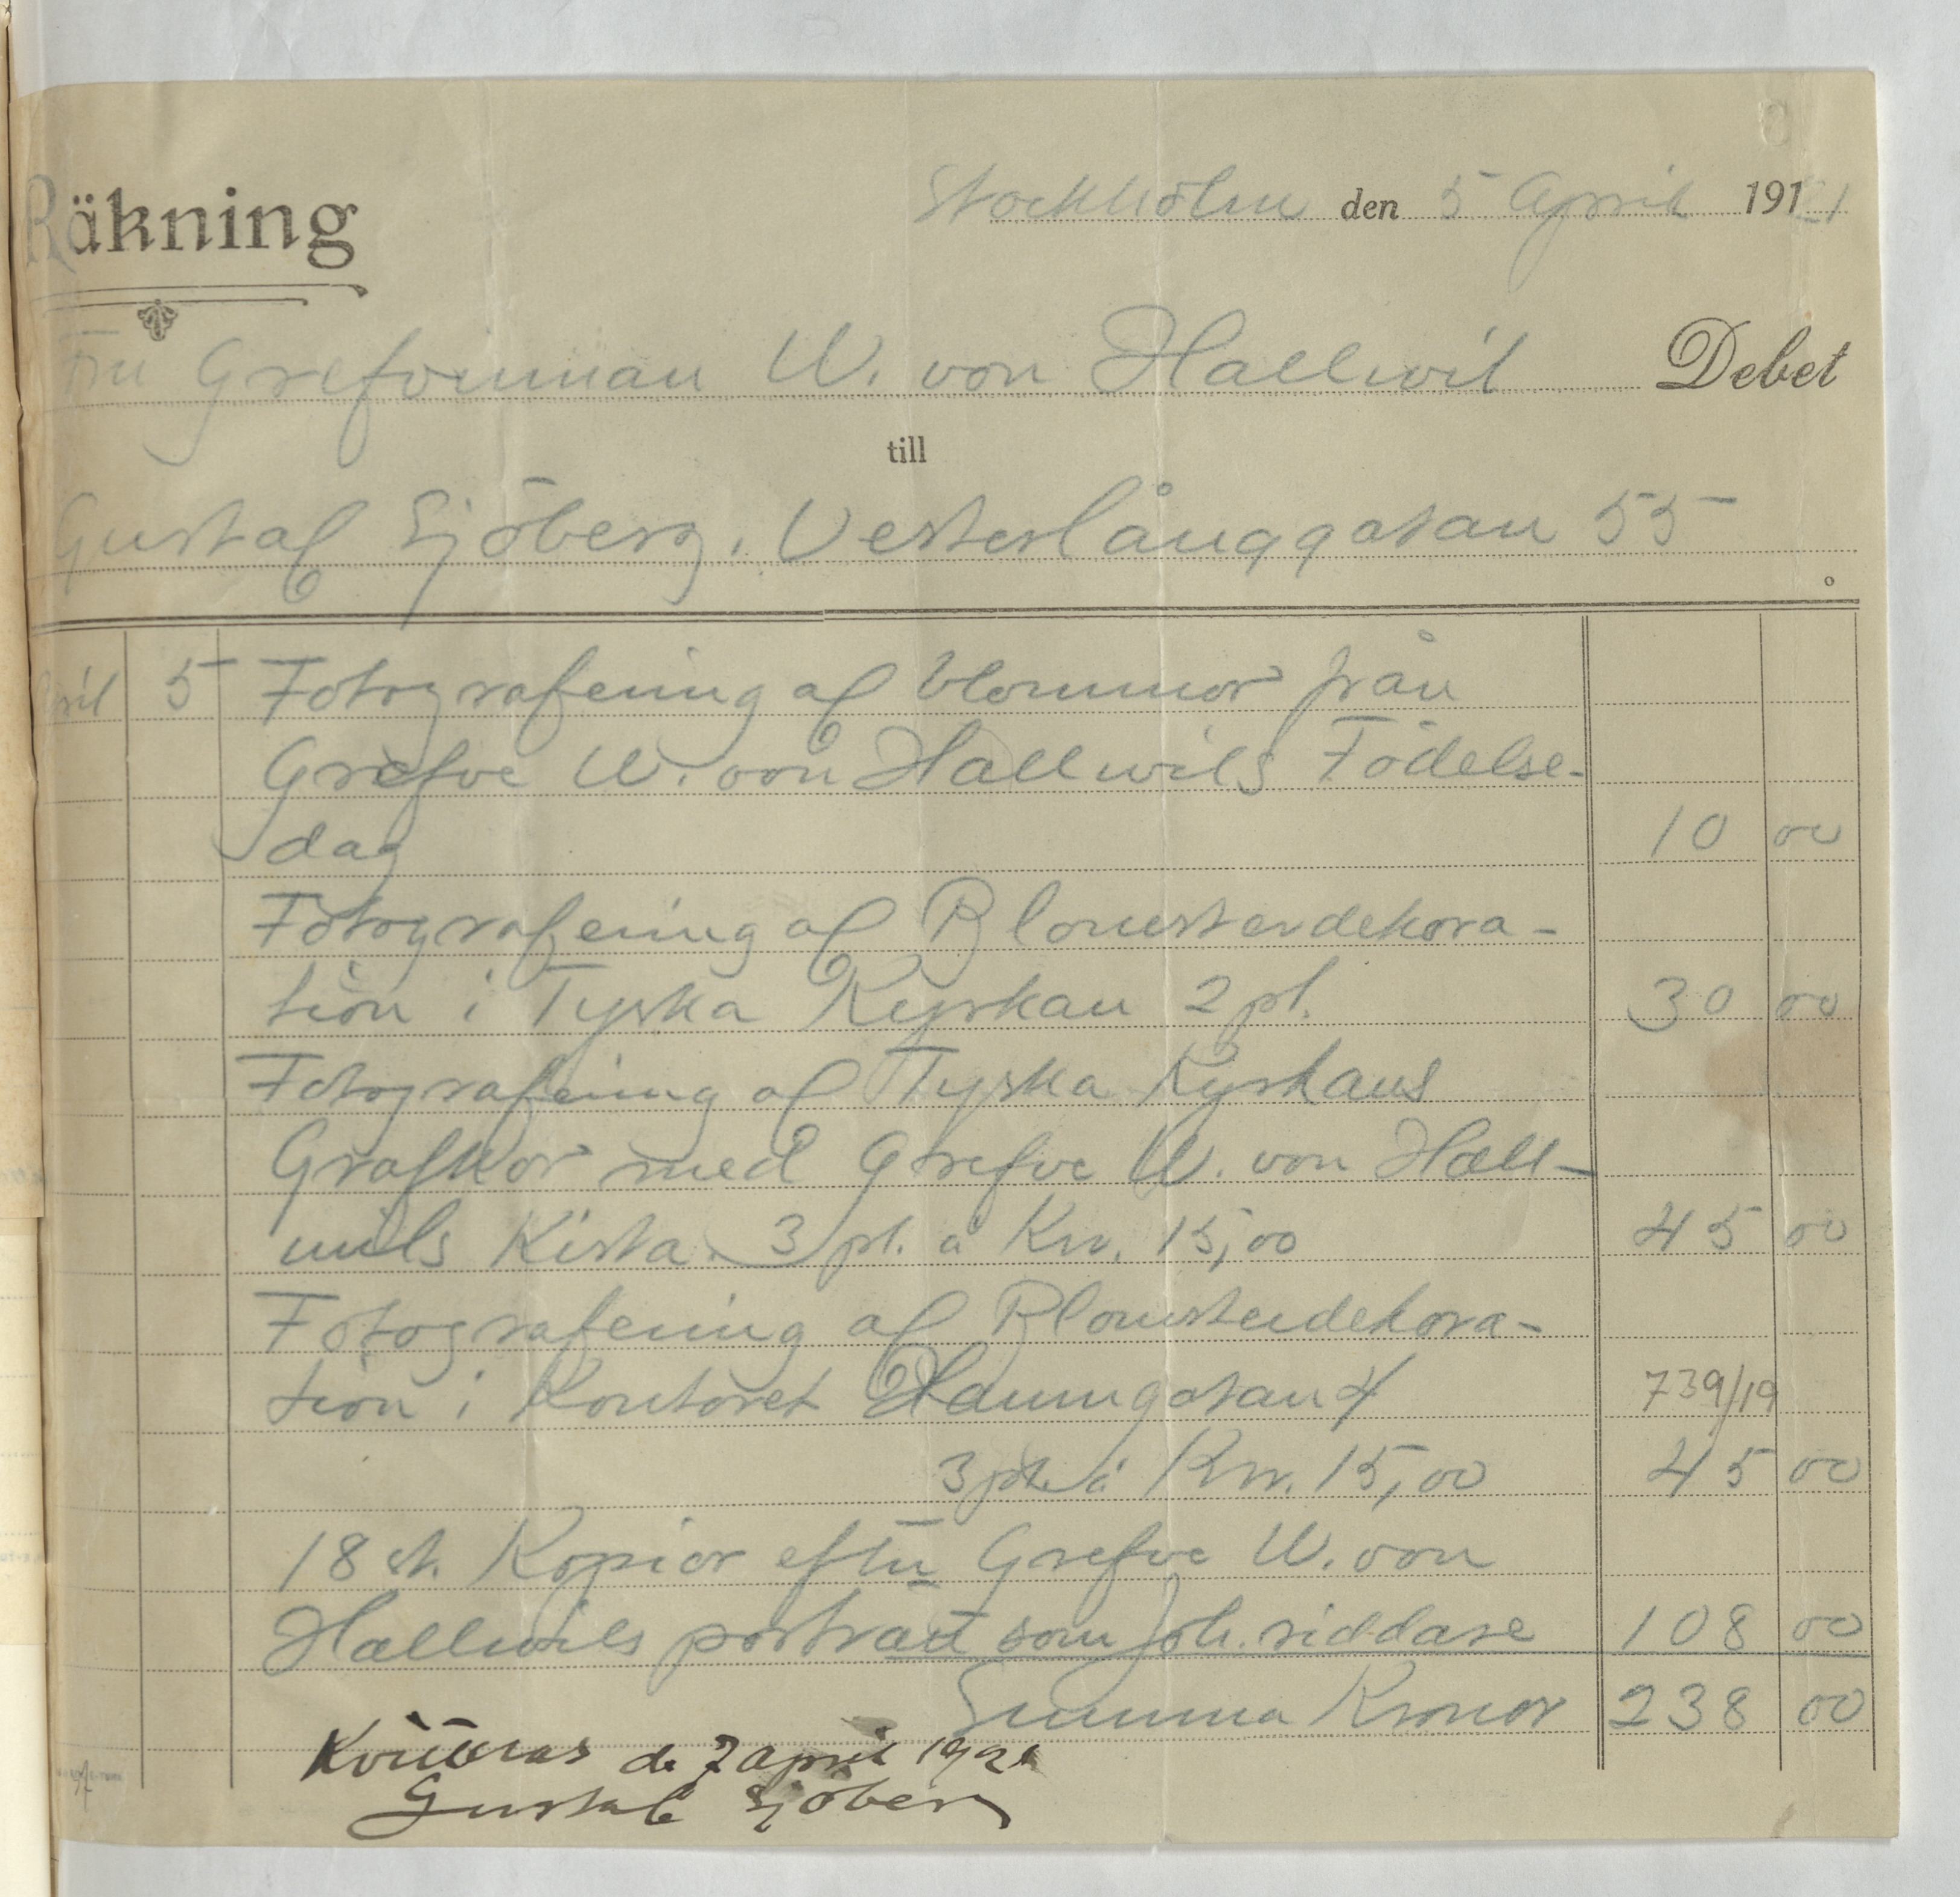 Räkning
Stockholm den 5 April 1921
Fru Grefvinnan W. von Hallwil Debet
till
Gustaf Sjöberg. Vesterlånggatan 55
April 5 Fotografering af blommor från
Grefve W. von Hallwils Födelse-
dag 10 00
Fotografering af Blomsterdekora-
tion i Tyska Kyrkan 2 pl. 30 00
Fotografering af Tyska Kyrkans
Grafkor med Grefve W. von Hall-
wils Kista. 3 pl. a Kr. 15,00 45 00
Fotografering af Blomsterdekora-
tion i Kontoret Hamngatan 4 739/19
3 pl. á Kr. 15,00 45 00
18 st. Kopior efter Grefve W. von
Hallwils porträtt som Joh. riddare 108 00
Summa Kronor 238 00
Kvitteras d. 7 april 1921
Gustaf Sjöberg